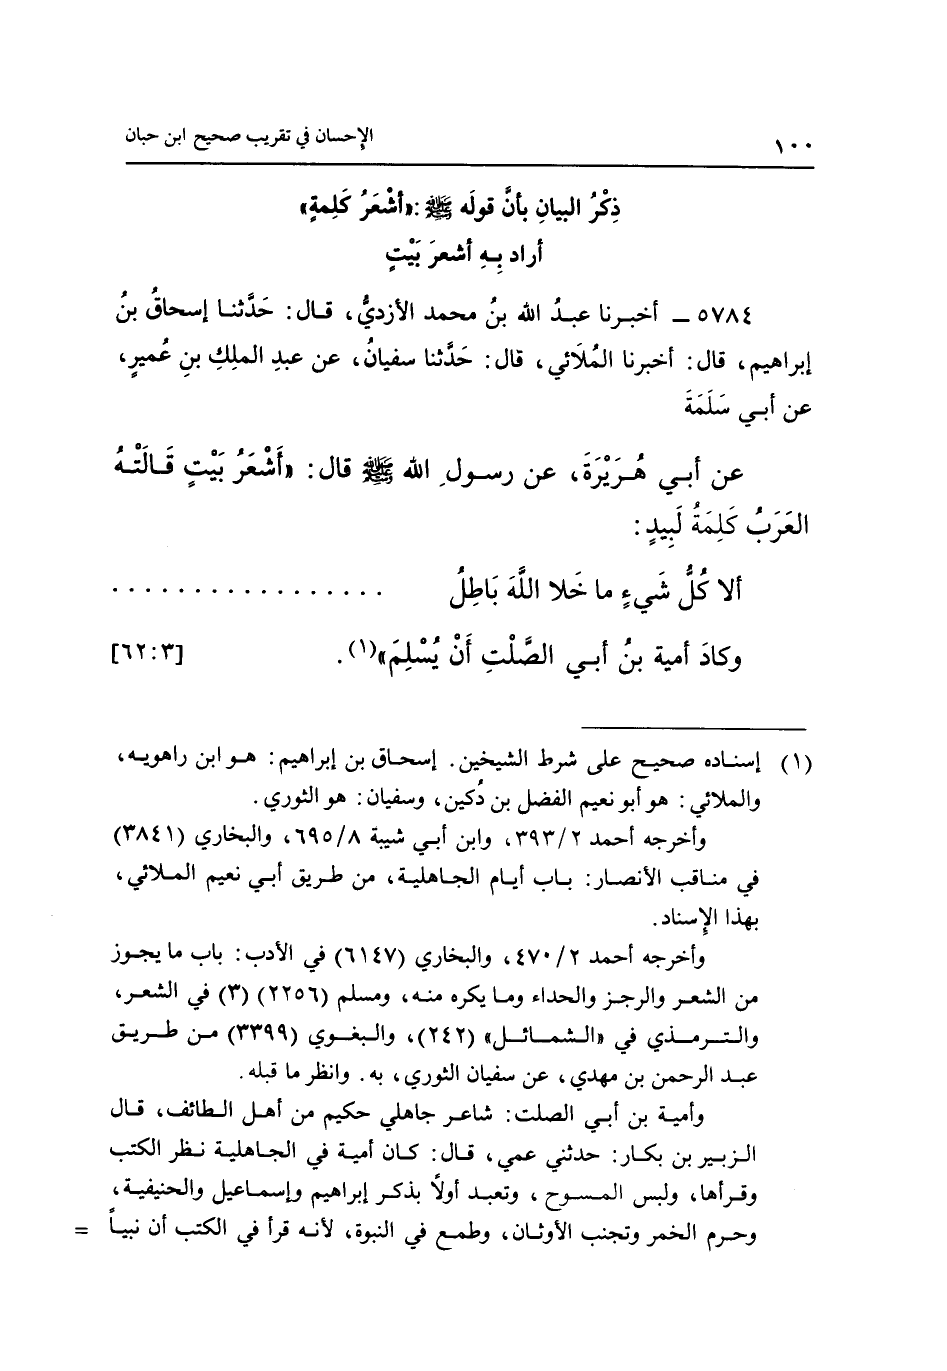 ١٠٠ الإحسان في تقريب صحيح ابن حبان
ذِكْرُ البيانِ بأنَّ قولَه ﷺ: «أَشْعَرُ كَلِمةٍ»
أراد بِهِ أشعرَ بَيْتٍ
٥٧٨٤ ــ أخبرنا عبدُ الله بنُ محمد الأزديُّ، قال: حَدَّثنا إسحاقُ بنُ
إبراهيم، قال: أخبرنا المُلَائي، قال: حَدَّثنا سفيانُ، عن عبدِ الملِكِ بنِ عُميرٍ،
عن أبي سَلَمَةَ
عن أبي هُرَيْرَةَ، عن رسولِ الله ﷺ قال: «أَشْعَرُ بَيْتٍ قَالَتْهُ
العَرَبُ كَلِمَةُ لَبِيدٍ:
ألا كُلُّ شَيءٍ ما خَلا اللَّهَ بَاطِلُ . . . . . . . . . . . . . . . . .
وكادَ أمية بنُ أبي الصَّلْتِ أَنْ يُسْلِمَ»(١). [٣:٦٢]
(١) إسناده صحيح على شرط الشيخين. إسحاق بن إبراهيم: هو ابن راهويه،
والملائي: هو أبو نعيم الفضل بن دُكين، وسفيان: هو الثوري.
وأخرجه أحمد ٣٩٣/٢، وابن أبي شيبة ٦٩٥/٨، والبخاري (٣٨٤١)
في مناقب الأنصار: باب أيام الجاهلية، من طريق أبي نعيم الملائي،
بهذا الإسناد.
وأخرجه أحمد ٤٧٠/٢، والبخاري (٦١٤٧) في الأدب: باب ما يجوز
من الشعر والرجز والحداء وما يكره منه، ومسلم (٢٢٥٦) (٣) في الشعر،
والترمذي في «الشمائل» (٢٤٢)، والبغوي (٣٣٩٩) من طريق
عبد الرحمن بن مهدي، عن سفيان الثوري، به. وانظر ما قبله.
وأمية بن أبي الصلت: شاعر جاهلي حكيم من أهل الطائف، قال
الزبير بن بكار: حدثني عمي، قال: كان أمية في الجاهلية نظر الكتب
وقرأها، ولبس المسوح، وتعبد أولاً بذكر إبراهيم وإسماعيل والحنيفية،
وحرم الخمر وتجنب الأوثان، وطمع في النبوة، لأنه قرأ في الكتب أن نبياً =